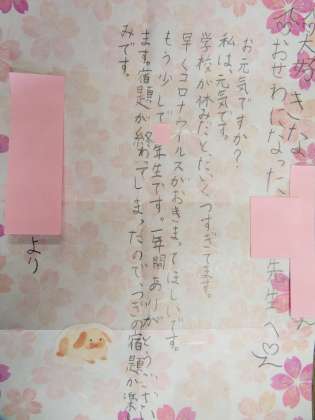 大好きな
おせわになった
先生へ♡
お元気ですか?
私は、元気です。
学校が休みだと、たいくつすぎてます。
早くコロナウイルスがおさまってほしいです。
もう少しで 年生です。一年間ありがとうござい
ます。宿題が終わってしまったので、つぎの宿題が楽し
みです。
より